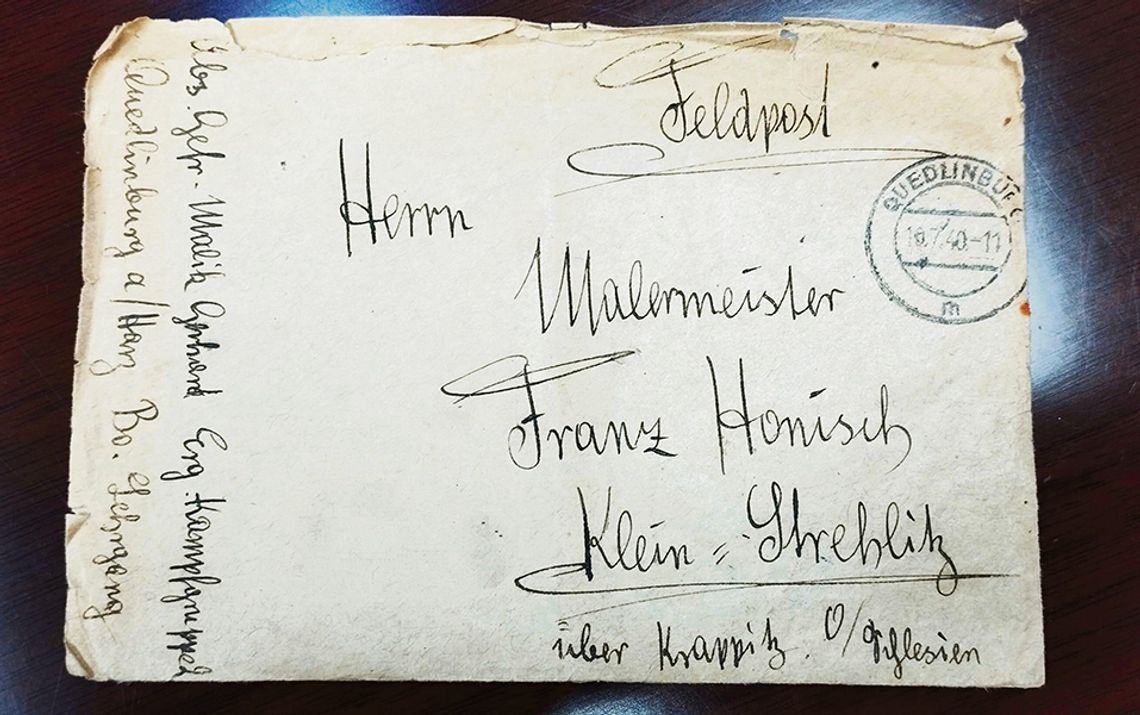 Feldpost
Herrn
Malermeister
Franz Honisch
Klein = Strehlitz
über Krappitz. O/Schlesien
QUEDLINBURG
16.7.40.-11
m
Abs. Gefr. Malik Gerhard Erg. Kampfgruppe
Quedlinburg a/Harz Bo. Lehrgang